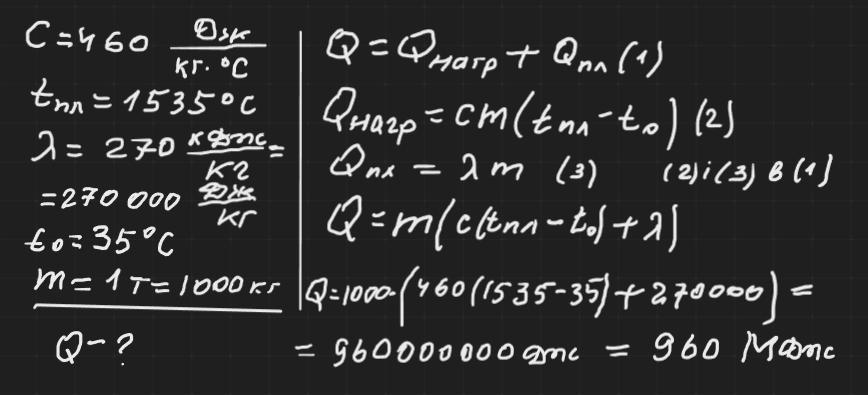 C = 460 Дж/кг·°C
tпл = 1535°C
λ = 270 кДж/кг =
= 270 000 Дж/кг
t₀ = 35°C
m = 1 т = 1000 кг
Q - ?
Q = Qнагр + Qпл (1)
Qнагр = cm(tпл - t₀) (2)
Qпл = λm (3) (2) і (3) в (1)
Q = m(c(tпл - t₀) + λ)
Q = 1000·(460(1535-35) + 270000) =
= 960000000 Дж = 960 МДж